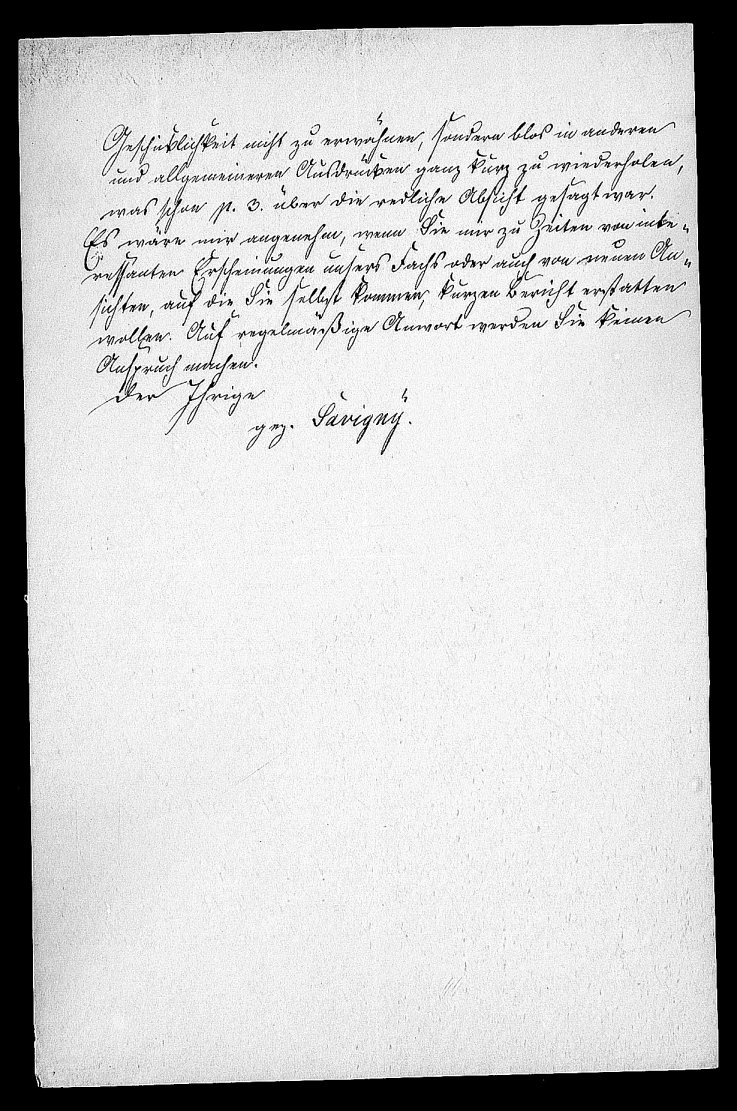 Geschicklichkeit nicht zu erwähnen, sondern blos in anderen
und allgemeineren Ausdrücken ganz kurz zu wiederholen,
was schon p. 3. über die redliche Absicht gesagt war.
Es wäre mir angenehm, wenn Sie mir zu Zeiten von inte-
ressanten Erscheinungen unsers Fachs oder auch von neuen An-
sichten, auf die Sie selbst kommen, kurzen Bericht erstatten
wollen. Auf regelmäßige Anwort werden Sie keinen
Anspruch machen.
Der Ihrige
gez. Savigny.